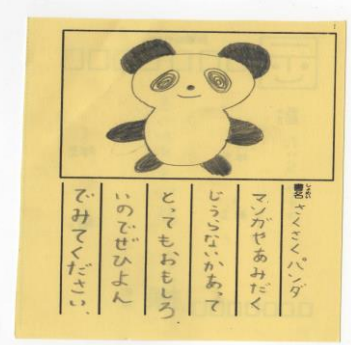 書名 さくさくパンダ
マンガやあみだく
じうらないがあって
とってもおもしろ
いのでぜひよん
でみてください。